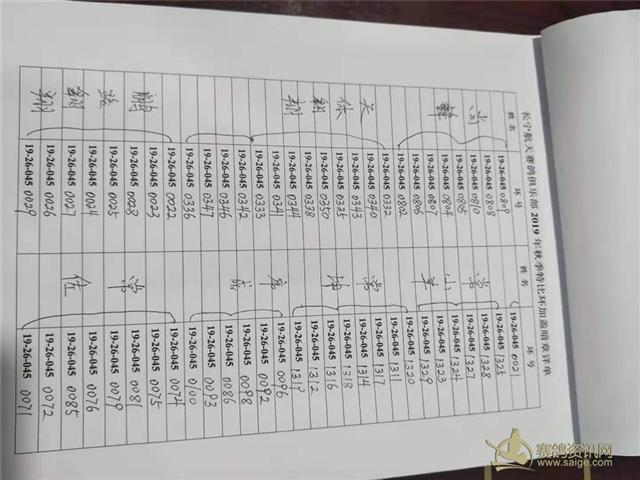 长宁航天赛鸽俱乐部 2019 年秋季特比环加盖暗章详单
姓名 环号 姓名 环号
19-26-045 0809 19-26-045 0021
19-26-045 0808 19-26-045 1325
19-26-045 0810 常 19-26-045 1328
19-26-045 0805 19-26-045 1327
19-26-045 0804 小 19-26-045 1324
19-26-045 0807 19-26-045 1323
19-26-045 0806 军 19-26-045 1329
19-26-045 0802 19-26-045 1320
19-26-045 0332 19-26-045 1311
天 19-26-045 0340 常 19-26-045 1317
19-26-045 0343 19-26-045 1314
休 19-26-045 0335 19-26-045 1318
19-26-045 0350 坤 19-26-045 1316
翱 19-26-045 0338 19-26-045 1312
翔 19-26-045 0344 19-26-045 1319
19-26-045 0341 19-26-045 0096
19-26-045 0333 19-26-045 0092
19-26-045 0342 19-26-045 0098
19-26-045 0346 成 19-26-045 0086
19-26-045 0347 19-26-045 0093
19-26-045 0336 19-26-045 0100
19-26-045 0022 19-26-045 0074
鹏 19-26-045 0023 19-26-045 0075
19-26-045 0028 常 19-26-045 0081
益 19-26-045 0025 19-26-045 0079
19-26-045 0024 19-26-045 0076
翱 19-26-045 0027 伍 19-26-045 0085
19-26-045 0026 19-26-045 0072
翔 19-26-045 0029 19-26-045 0071
赛鸽资讯网
www.saige.com